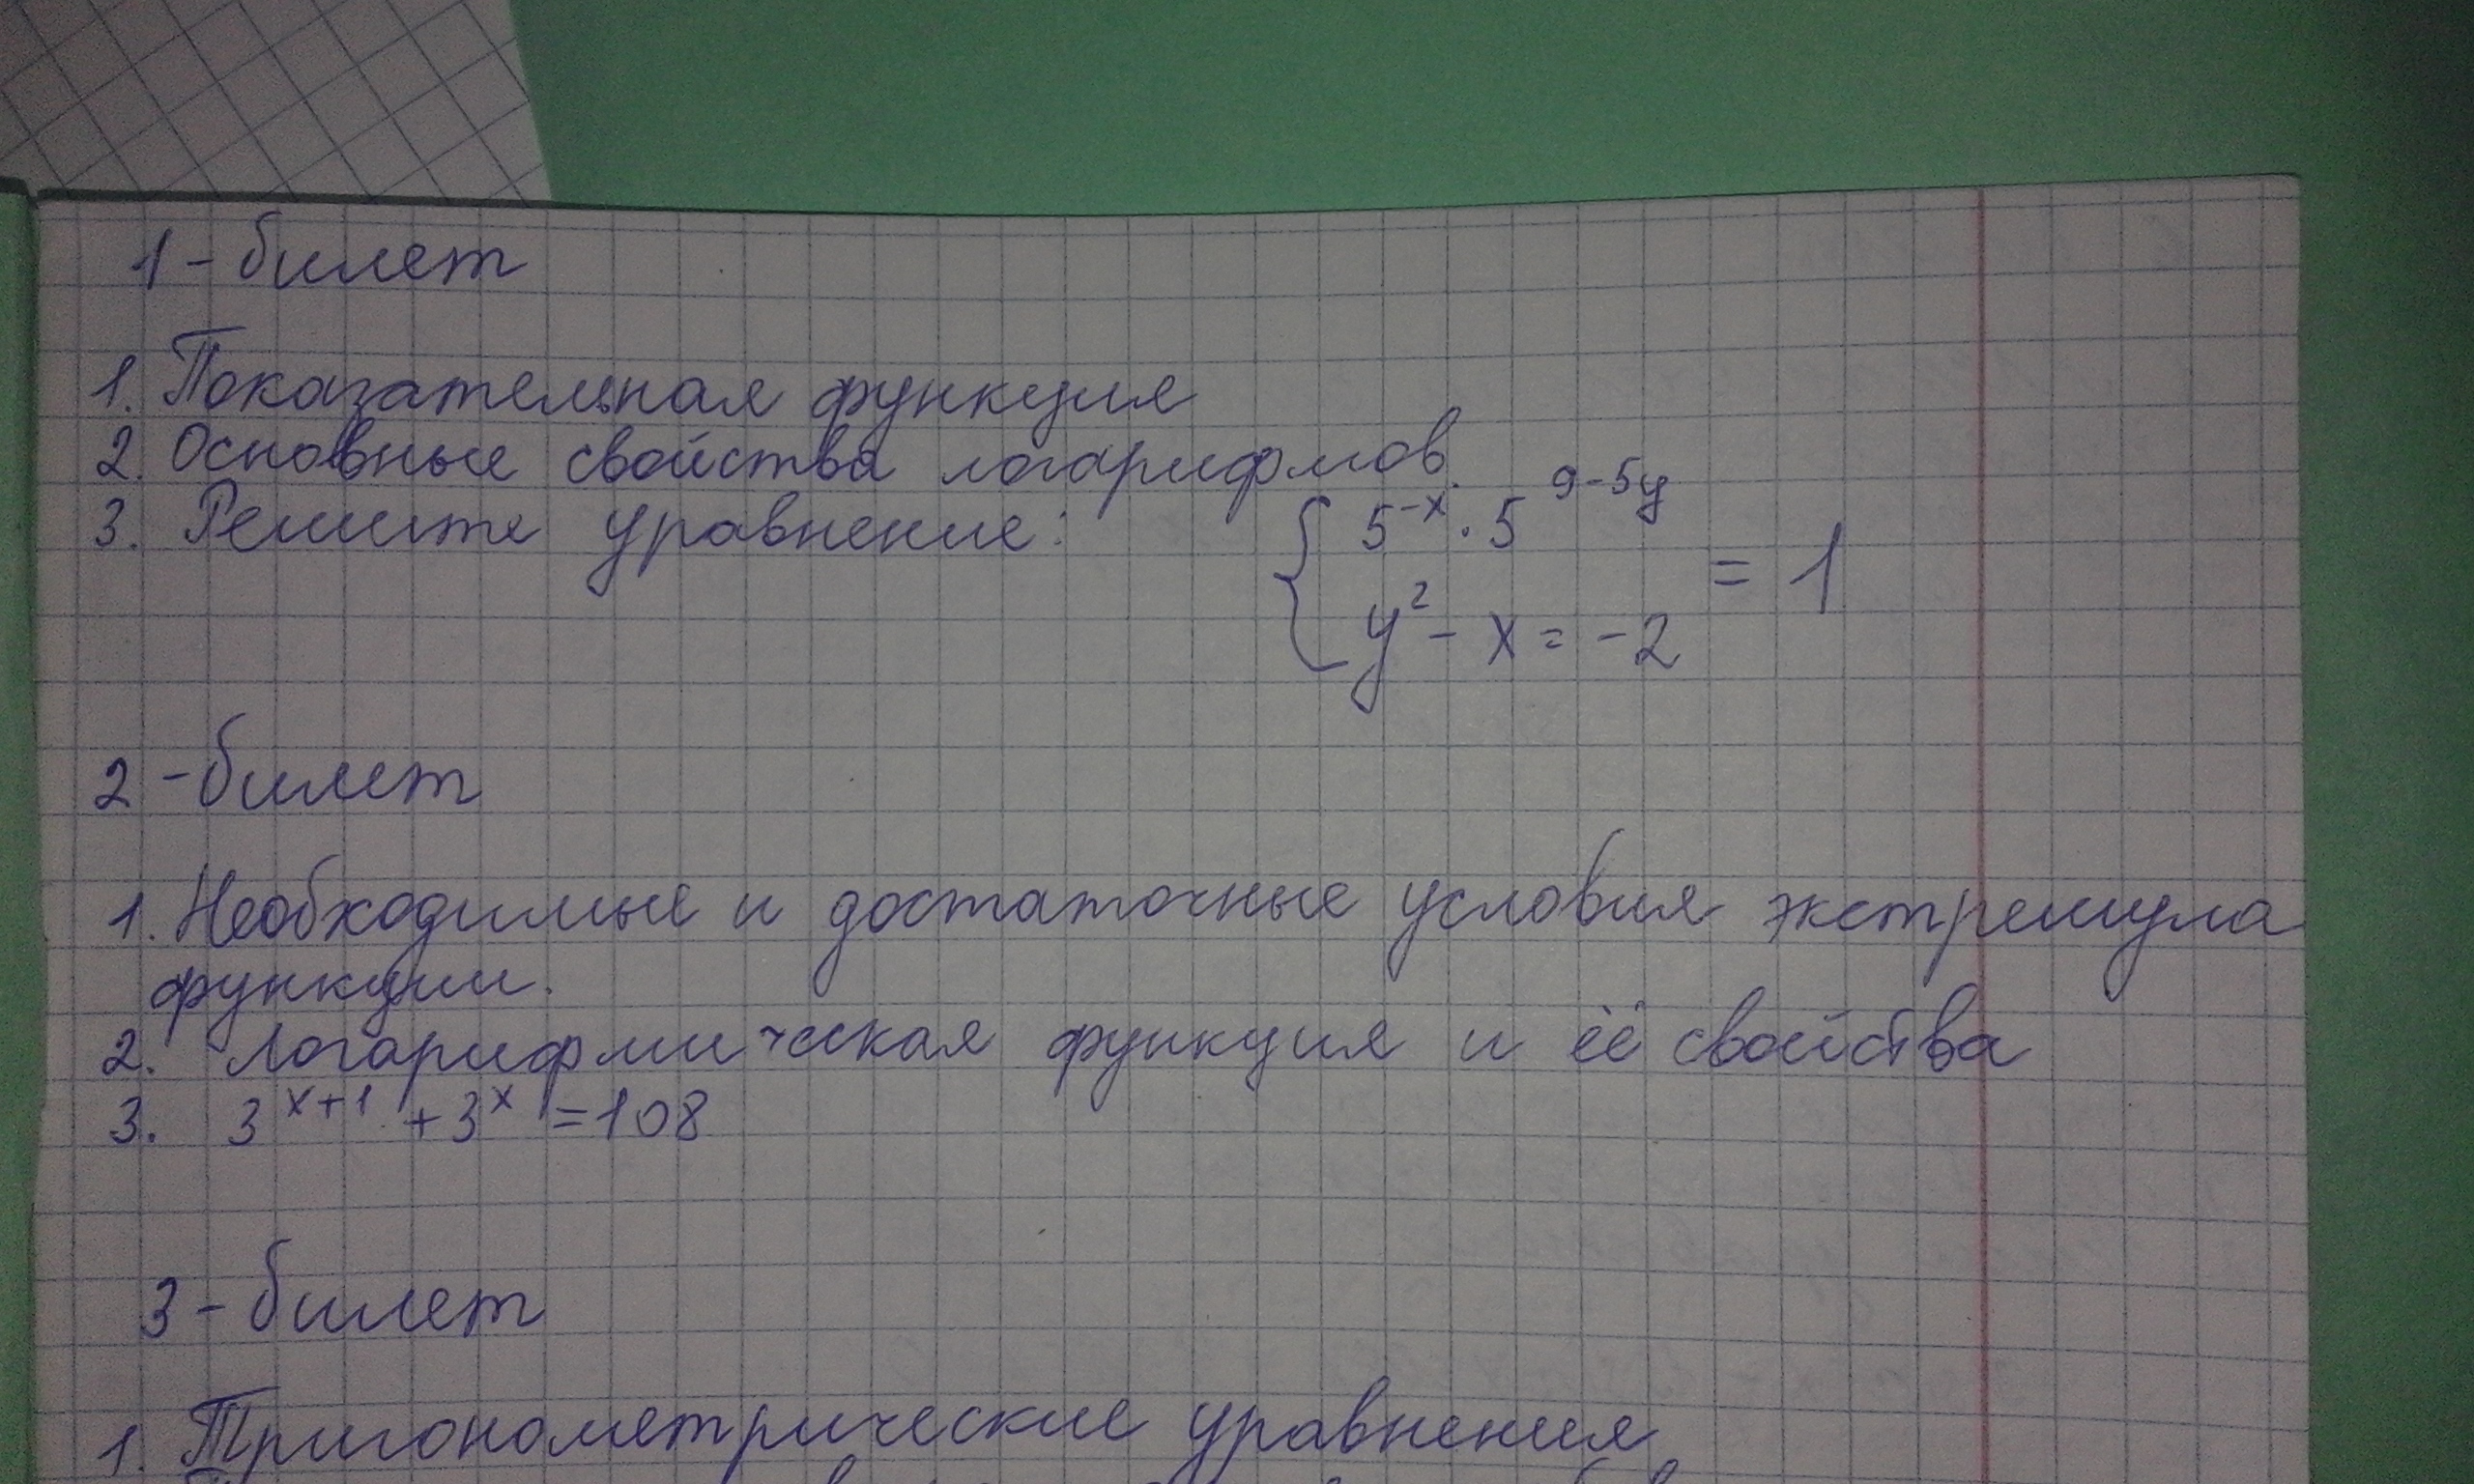 1 - билет
1. Показательная функция
2. Основные свойства логарифмов.
3. Решите уравнение: { 5^-x · 5^9-5y = 1
y² - x = -2
2 - билет
1. Необходимые и достаточные условия экстремума
функции.
2. Логарифмическая функция и её свойства
3. 3^x+1 + 3^x = 108
3 - билет
1. Тригонометрические уравнения